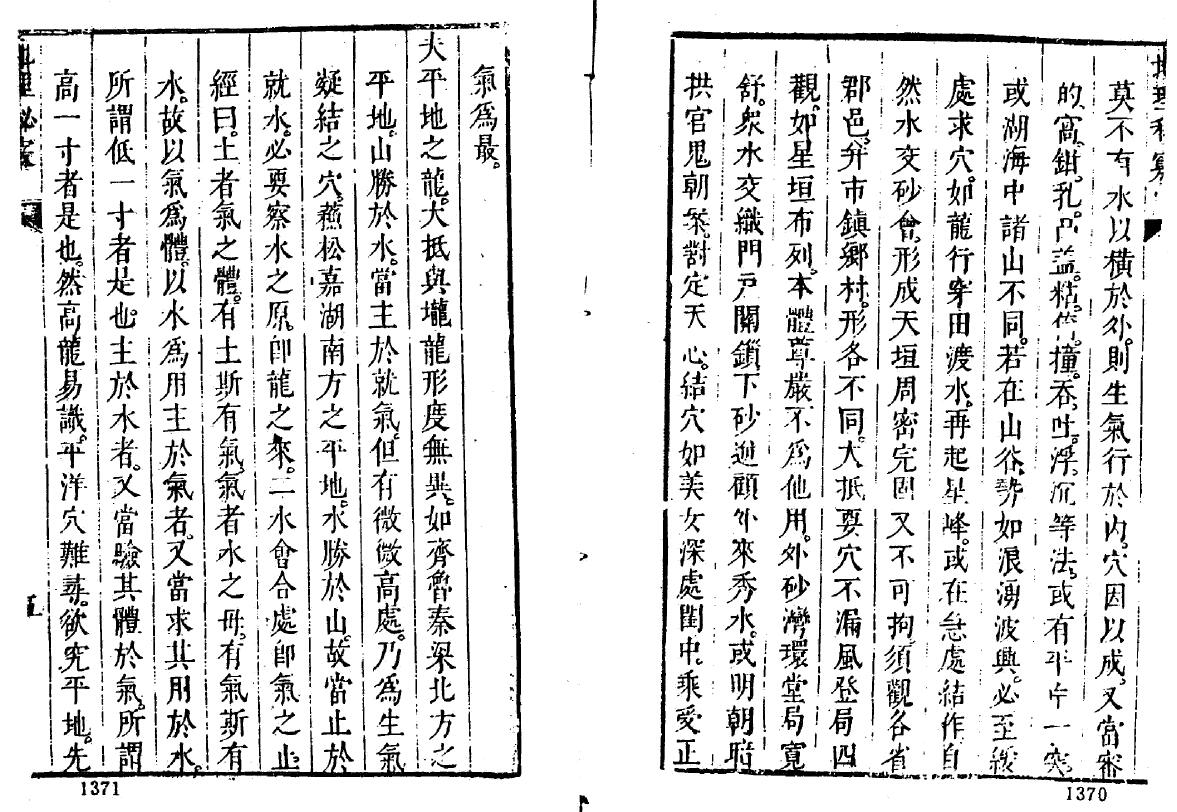 莫不有水以橫於外。則生氣行於內。穴因以成。又當審
的窩鉗乳凸蓋粘倚撞。吞吐。浮。沉等法。或有平中一突。
或湖海中諸山不同。若在山谷。勢如浪湧波興。必至緩
處求穴。如龍行穿田渡水。再起星峰。或在急處結作。自
然水交砂會。形成天垣周密完固。又不可拘。須觀各省
郡邑。并市鎮鄉村。形各不同。大抵要穴不漏風登局四
觀。如星垣布列。本體尊嚴。不爲他用。外砂灣環堂局寬
舒。衆水交織門戶關鎖。下砂迎顧外來秀水。或明朝暗
拱官鬼朝案。對定天心。結穴如美女深處閨中。乘受正
1370
氣爲最。
大平地之龍。大抵與壠龍形度無異。如齊魯秦梁北方之
平地。山勝於水。當主於就氣。但有微微高處。乃爲生氣
凝結之穴。蘇松嘉湖南方之平地。水勝於山。故當止於
就水。必要察水之原。卽龍之來。二水會合處。卽氣之止
經曰。土者氣之體。有土斯有氣。氣者水之母。有氣斯有
水。故以氣爲體。以水爲用。主於氣者。又當求其用於水。
所謂低一寸者是也。主於水者。又當驗其體於氣。所謂
高一寸者是也。然高龍易識。平洋穴難尋。欲究平地。先
五
1371